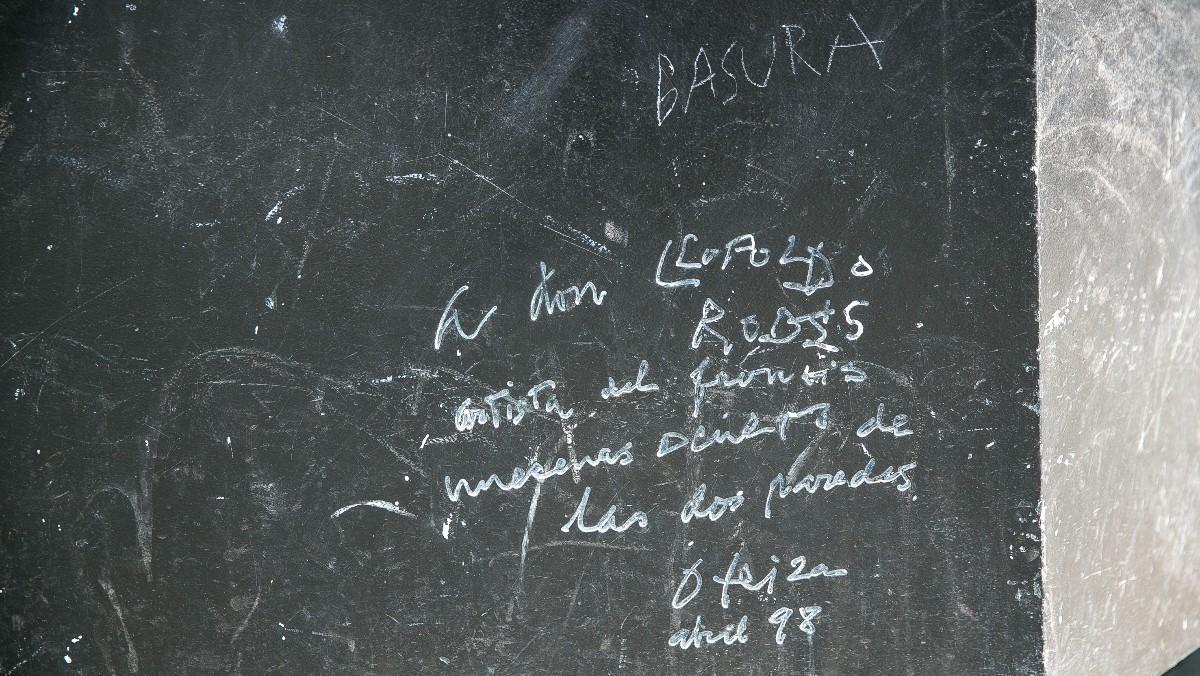 BASURA
A don LEOPOLDO
RODÉS
artista del frontis
mecenas de
las dos paredes
Oteiza
abril 98